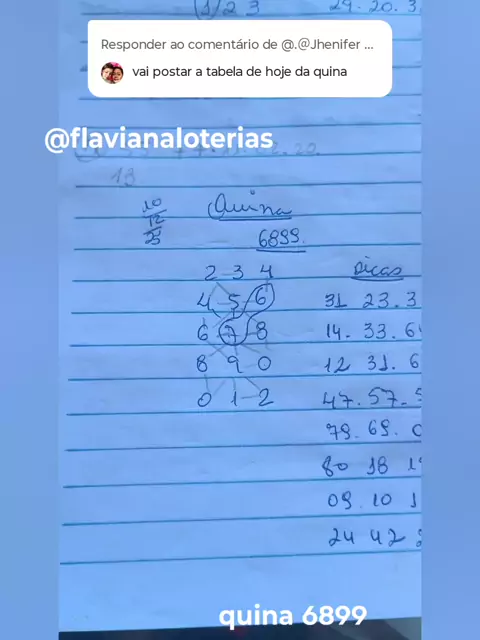 (1) 2 3
29. 20. 3
Responder ao comentário de @.@Jhenifer ...
vai postar a tabela de hoje da quina
@flavianaloterias
13
10
12
25
Quina
6899
2 3 4
4 5 6
6 7 8
8 9 0
0 1 2
Dicas
31 23. 3
14. 33. 6
12 31. 6
47. 57. 5
79. 69. 0
80 18 1
09. 10 1
24 42 2
quina 6899